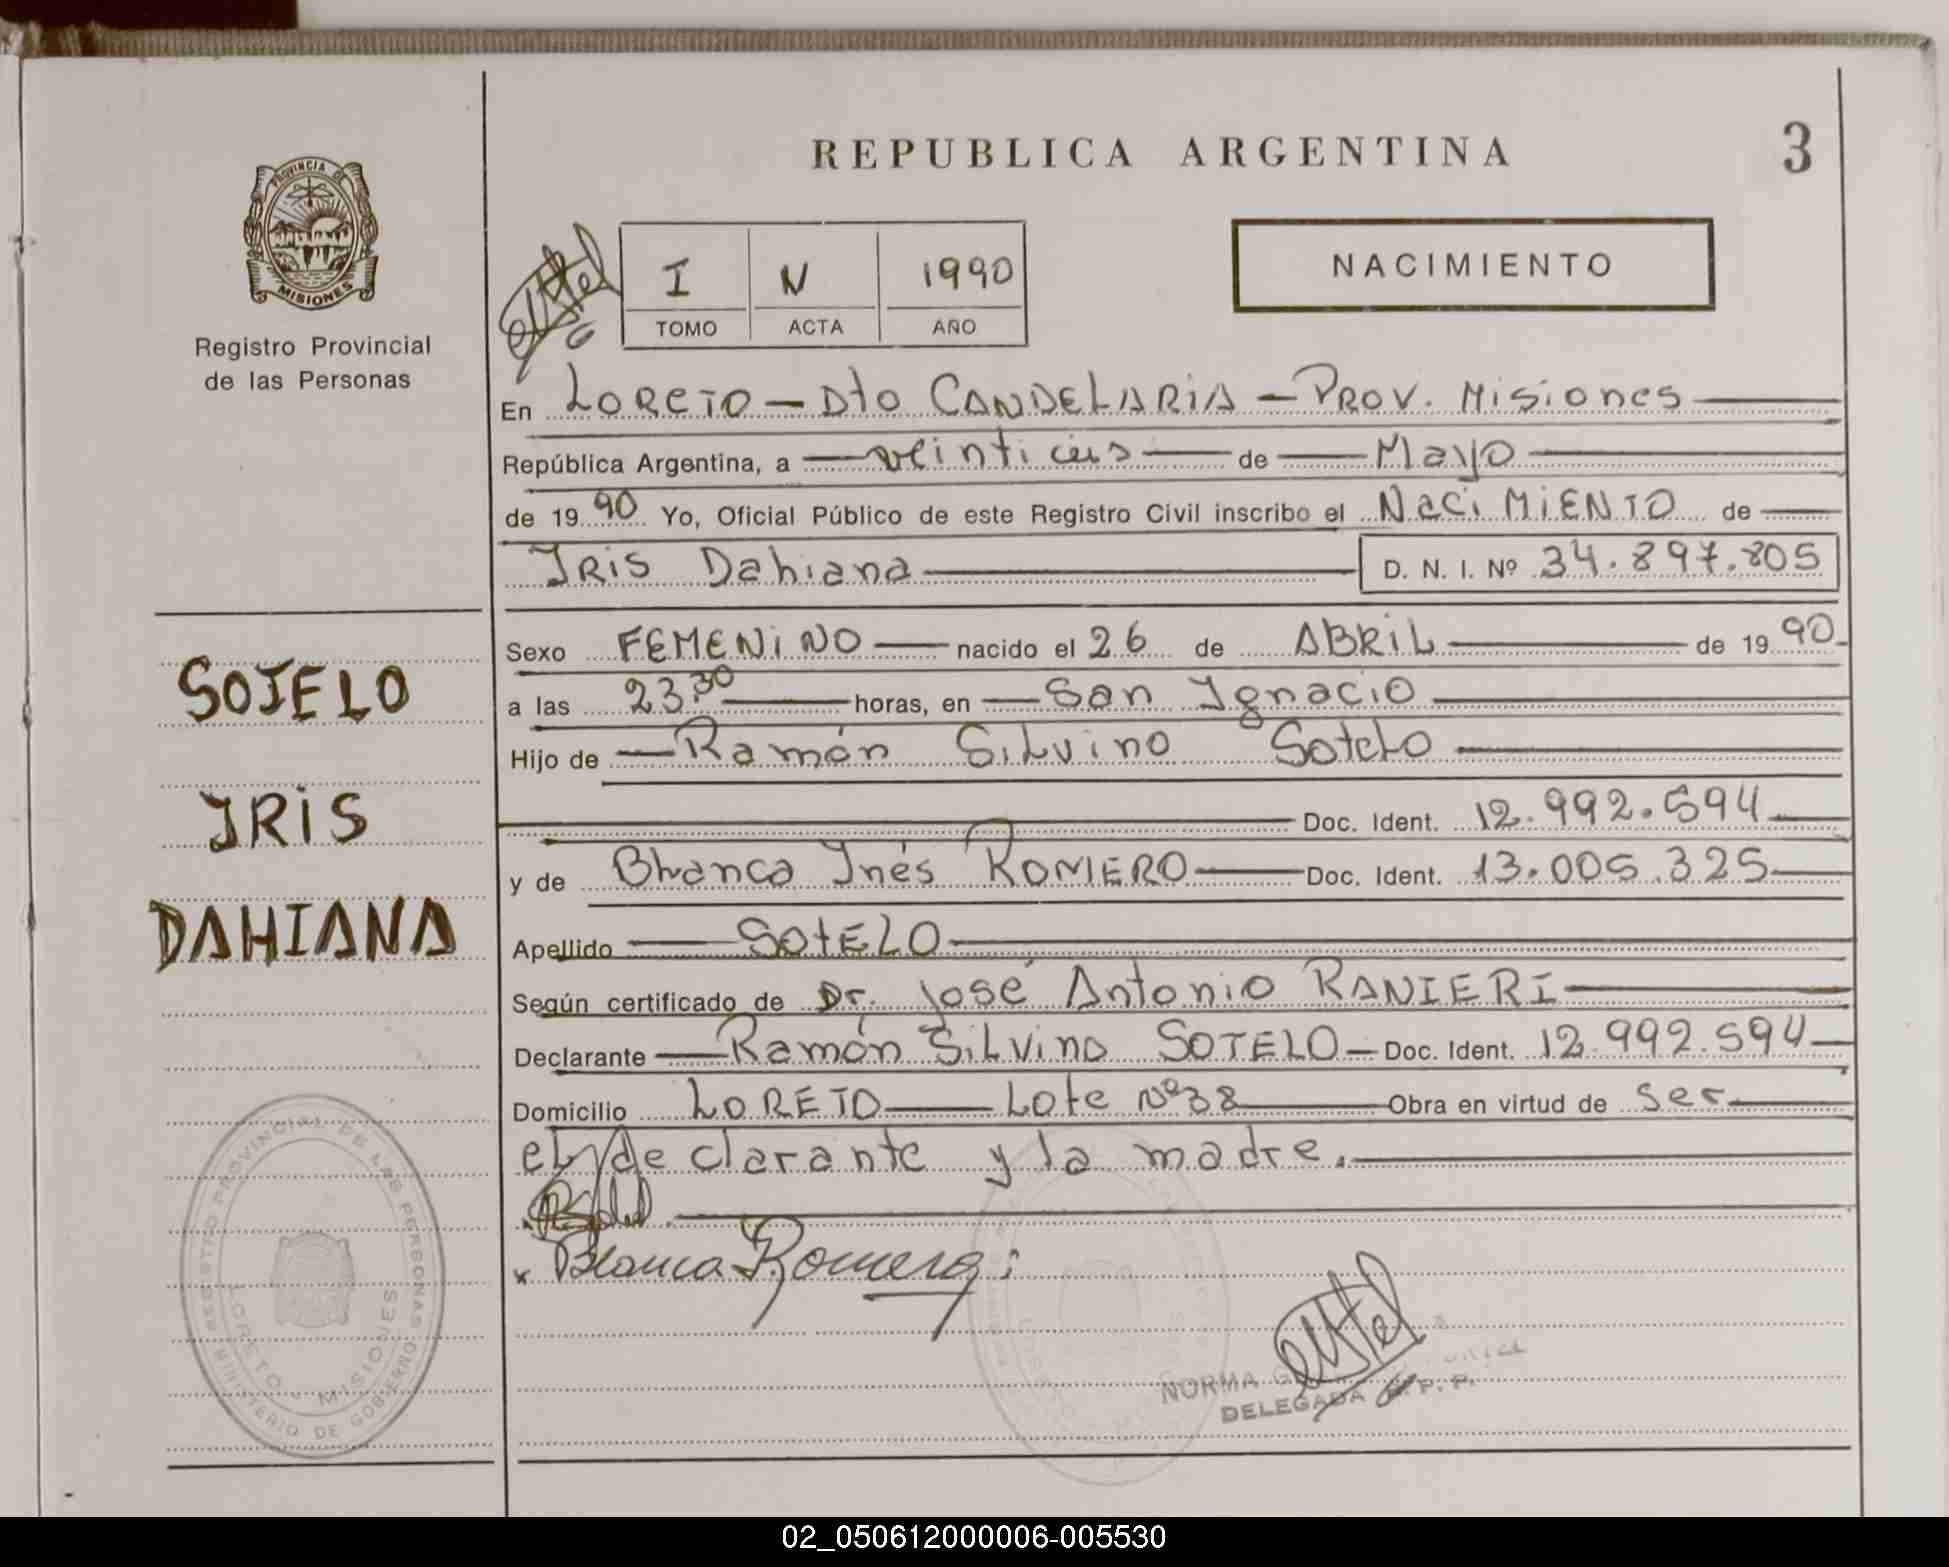 REPUBLICA ARGENTINA
3
PROVINCIA DE
MISIONES
Registro Provincial
de las Personas
I N 1990
TOMO ACTA AÑO
NACIMIENTO
En LORETO - Dto CANDELARIA - PROV. Misiones
República Argentina, a de Mayo
de 1990 Yo, Oficial Público de este Registro Civil inscribo el NaciMiENTO de
IRiS Dahiana D. N. I. Nº 34.897.805
Sexo FEMENiNO nacido el 26 de ABRiL de 1990
a las 23.30 horas, en San Ignacio
Hijo de Ramón SiLvino SoteLo
Doc. Ident. 12.992.594
y de BLanca Inés ROMERO Doc. Ident. 13.005.325
Apellido SOtELO
Según certificado de Dr. José Antonio RANIERI
Declarante Ramón SiLvino SOTELO - Doc. Ident. 12.992.594
Domicilio LORETO Lote Nº 38 Obra en virtud de Ser
eL declarante y la madre.
x Blanca Romero
SOTELO
IRiS
DAHIANA
REGISTRO PROVINCIAL DE LAS PERSONAS
LORETO - MISIONES
MINISTERIO DE GOBIERNO
NORMA
DELEGADA R. P. P.
02_050612000006-005530